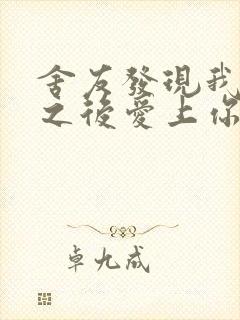 舍友發現我
之後愛上你
卓九成